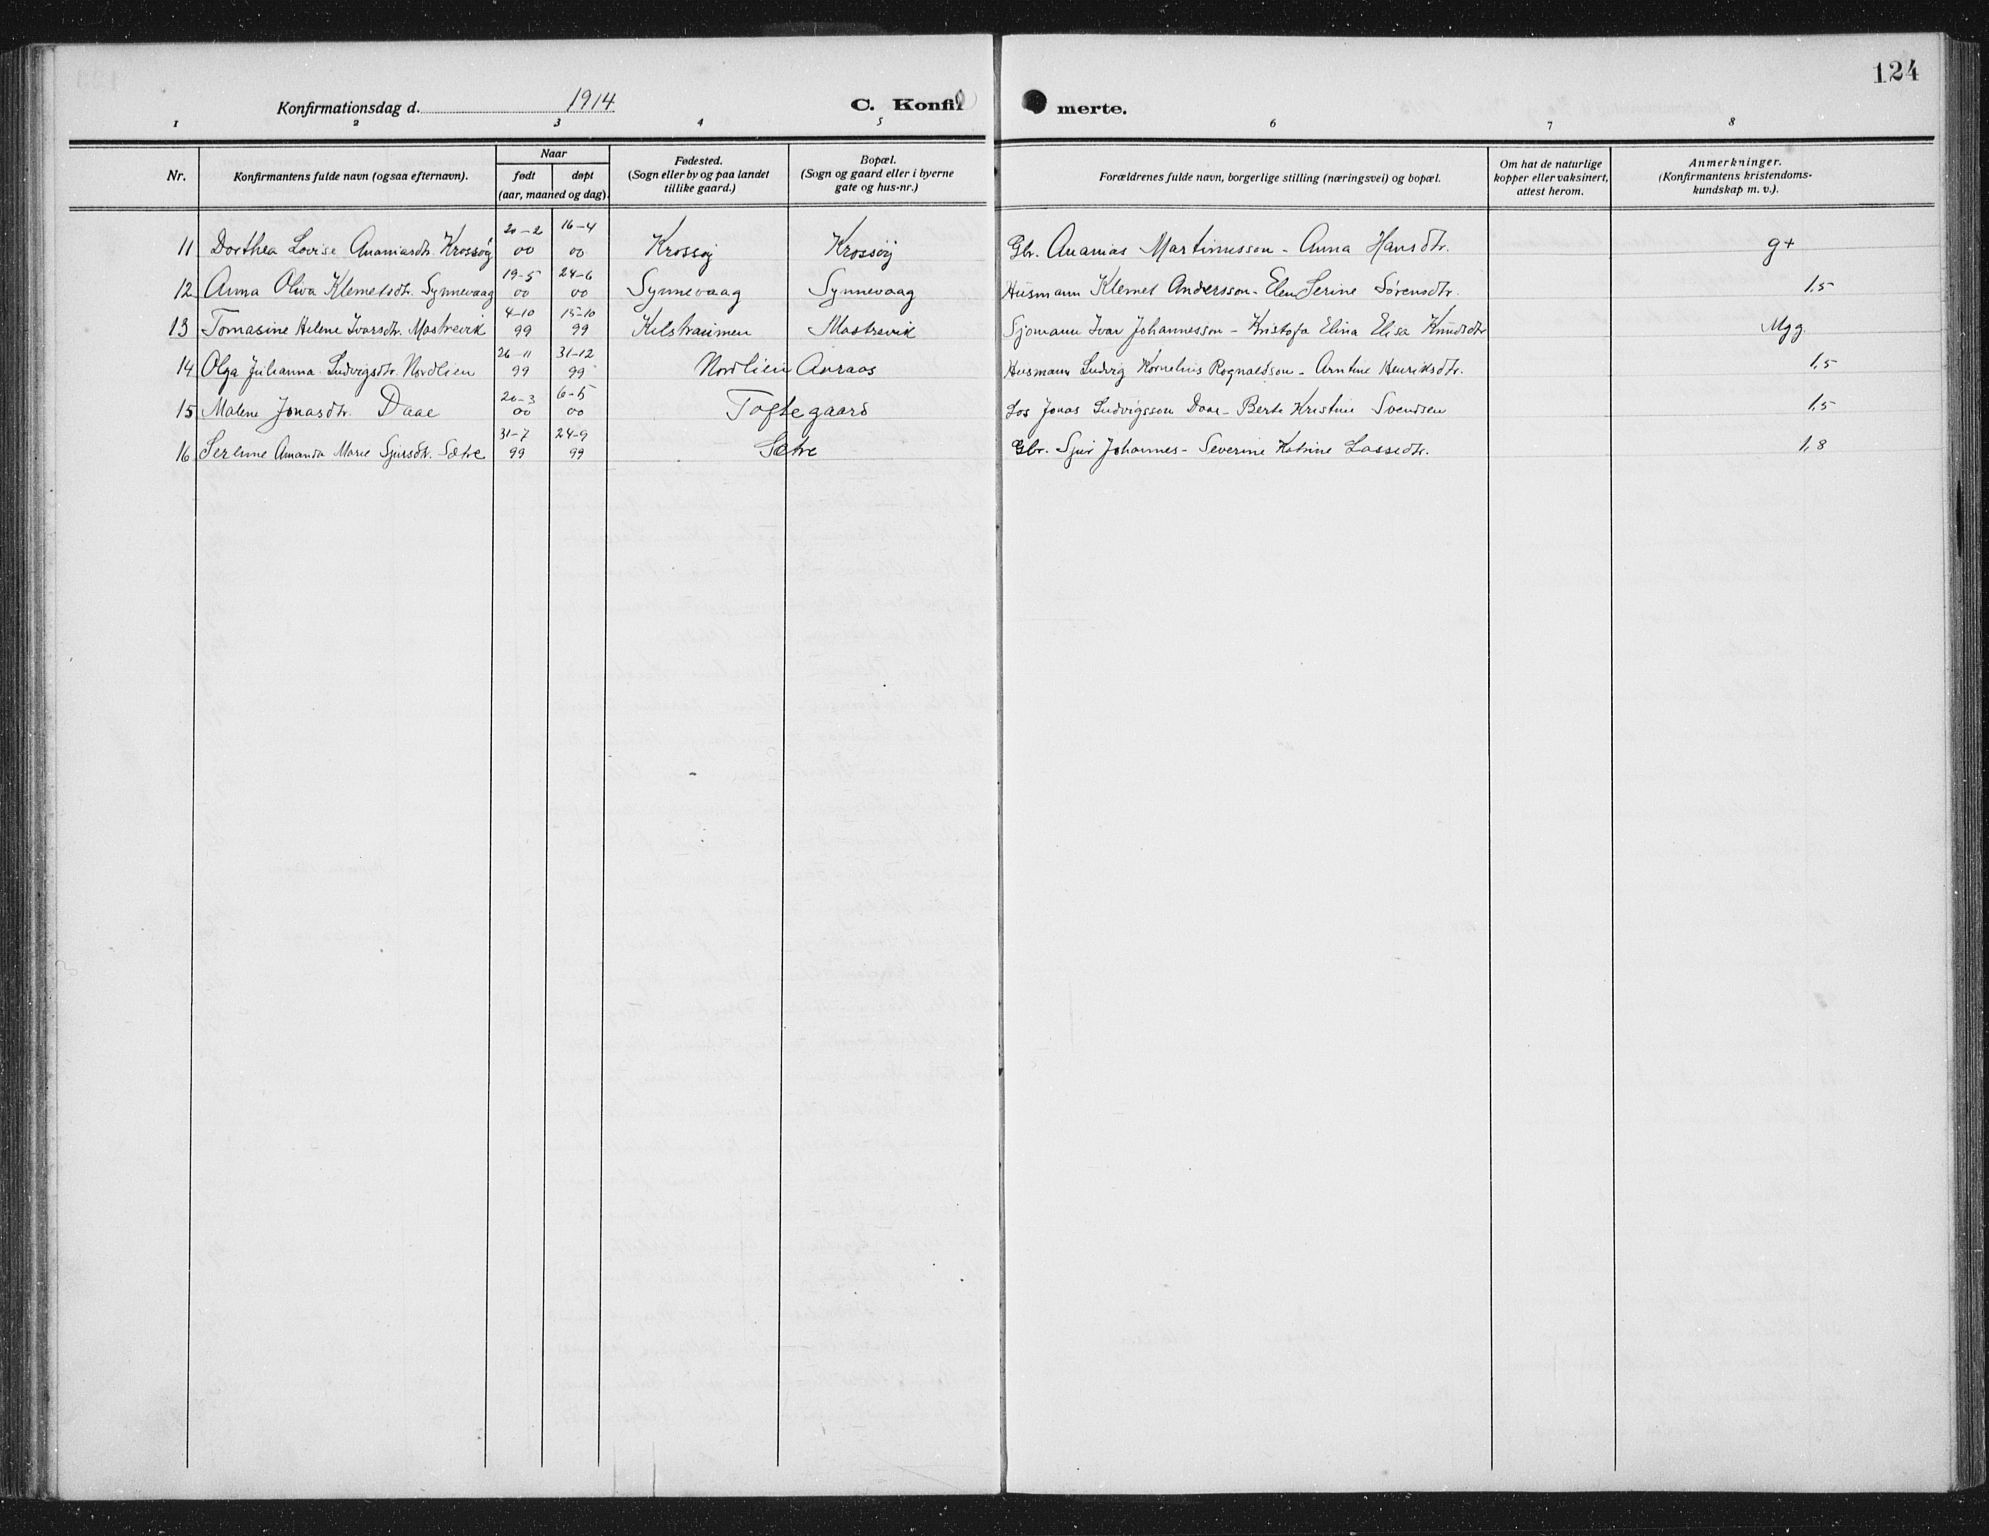 124
Konfirmationsdag d. 1914
C. Konfir merte.
1 2 3 4 5 6 7 8
Nr.
Konfirmantens fulde navn (ogsaa efternavn).
Naar
født døpt
(aar, maaned og dag).
Fødested.
(Sogn eller by og paa landet
tillike gaard.)
Bopæl.
(Sogn og gaard eller i byerne
gate og hus-nr.)
Forældrenes fulde navn, borgerlige stilling (næringsvei) og bopæl.
Om hat de naturlige
kopper eller vaksinert,
attest herom.
Anmerkninger.
(Konfirmantens kristendoms-
kundskap m. v.).
20-2 16-4
11 Dorthea Lovise Ananiasdtr. Krossøy 00 00 Krossøj Krossøj Gbr. Ananias Martinusson - Anna Hansdtr. g+
19-5 24-6
12 Anna Oliva Klemetsdtr. Synnevaag 00 00 Synnevaag Synnevaag Husmann Klemet Andersson - Elen Serine Sørensdtr. 1,5
4-10 15-10
13 Tomasine Helene Ivarsdtr. Mastrevik 99 99 Kilstraumen Mastrevik Sjømann Ivar Johannesson - Kristofa Elina Elisa Knudsdtr Mgg
26-11 31-12
14 Olga Julianna Ludvigsdtr. Nordlien 99 99 Nordlien Aaraas Husmann Ludvig Kornelius Rognaldson - Arntine Henriksdtr. 1,5
20-3 6-5
15 Malene Jonasdtr. Daae 00 00 Toftegaard Los Jonas Ludvigsson Daae - Berte Kristine Svendsen 1,5
31-7 24-9
16 Amanda Marie Sjursdtr. Sætre 99 99 Sætre Gbr. Sjur Johannes - Severine Katrine Lassedtr. 1,8